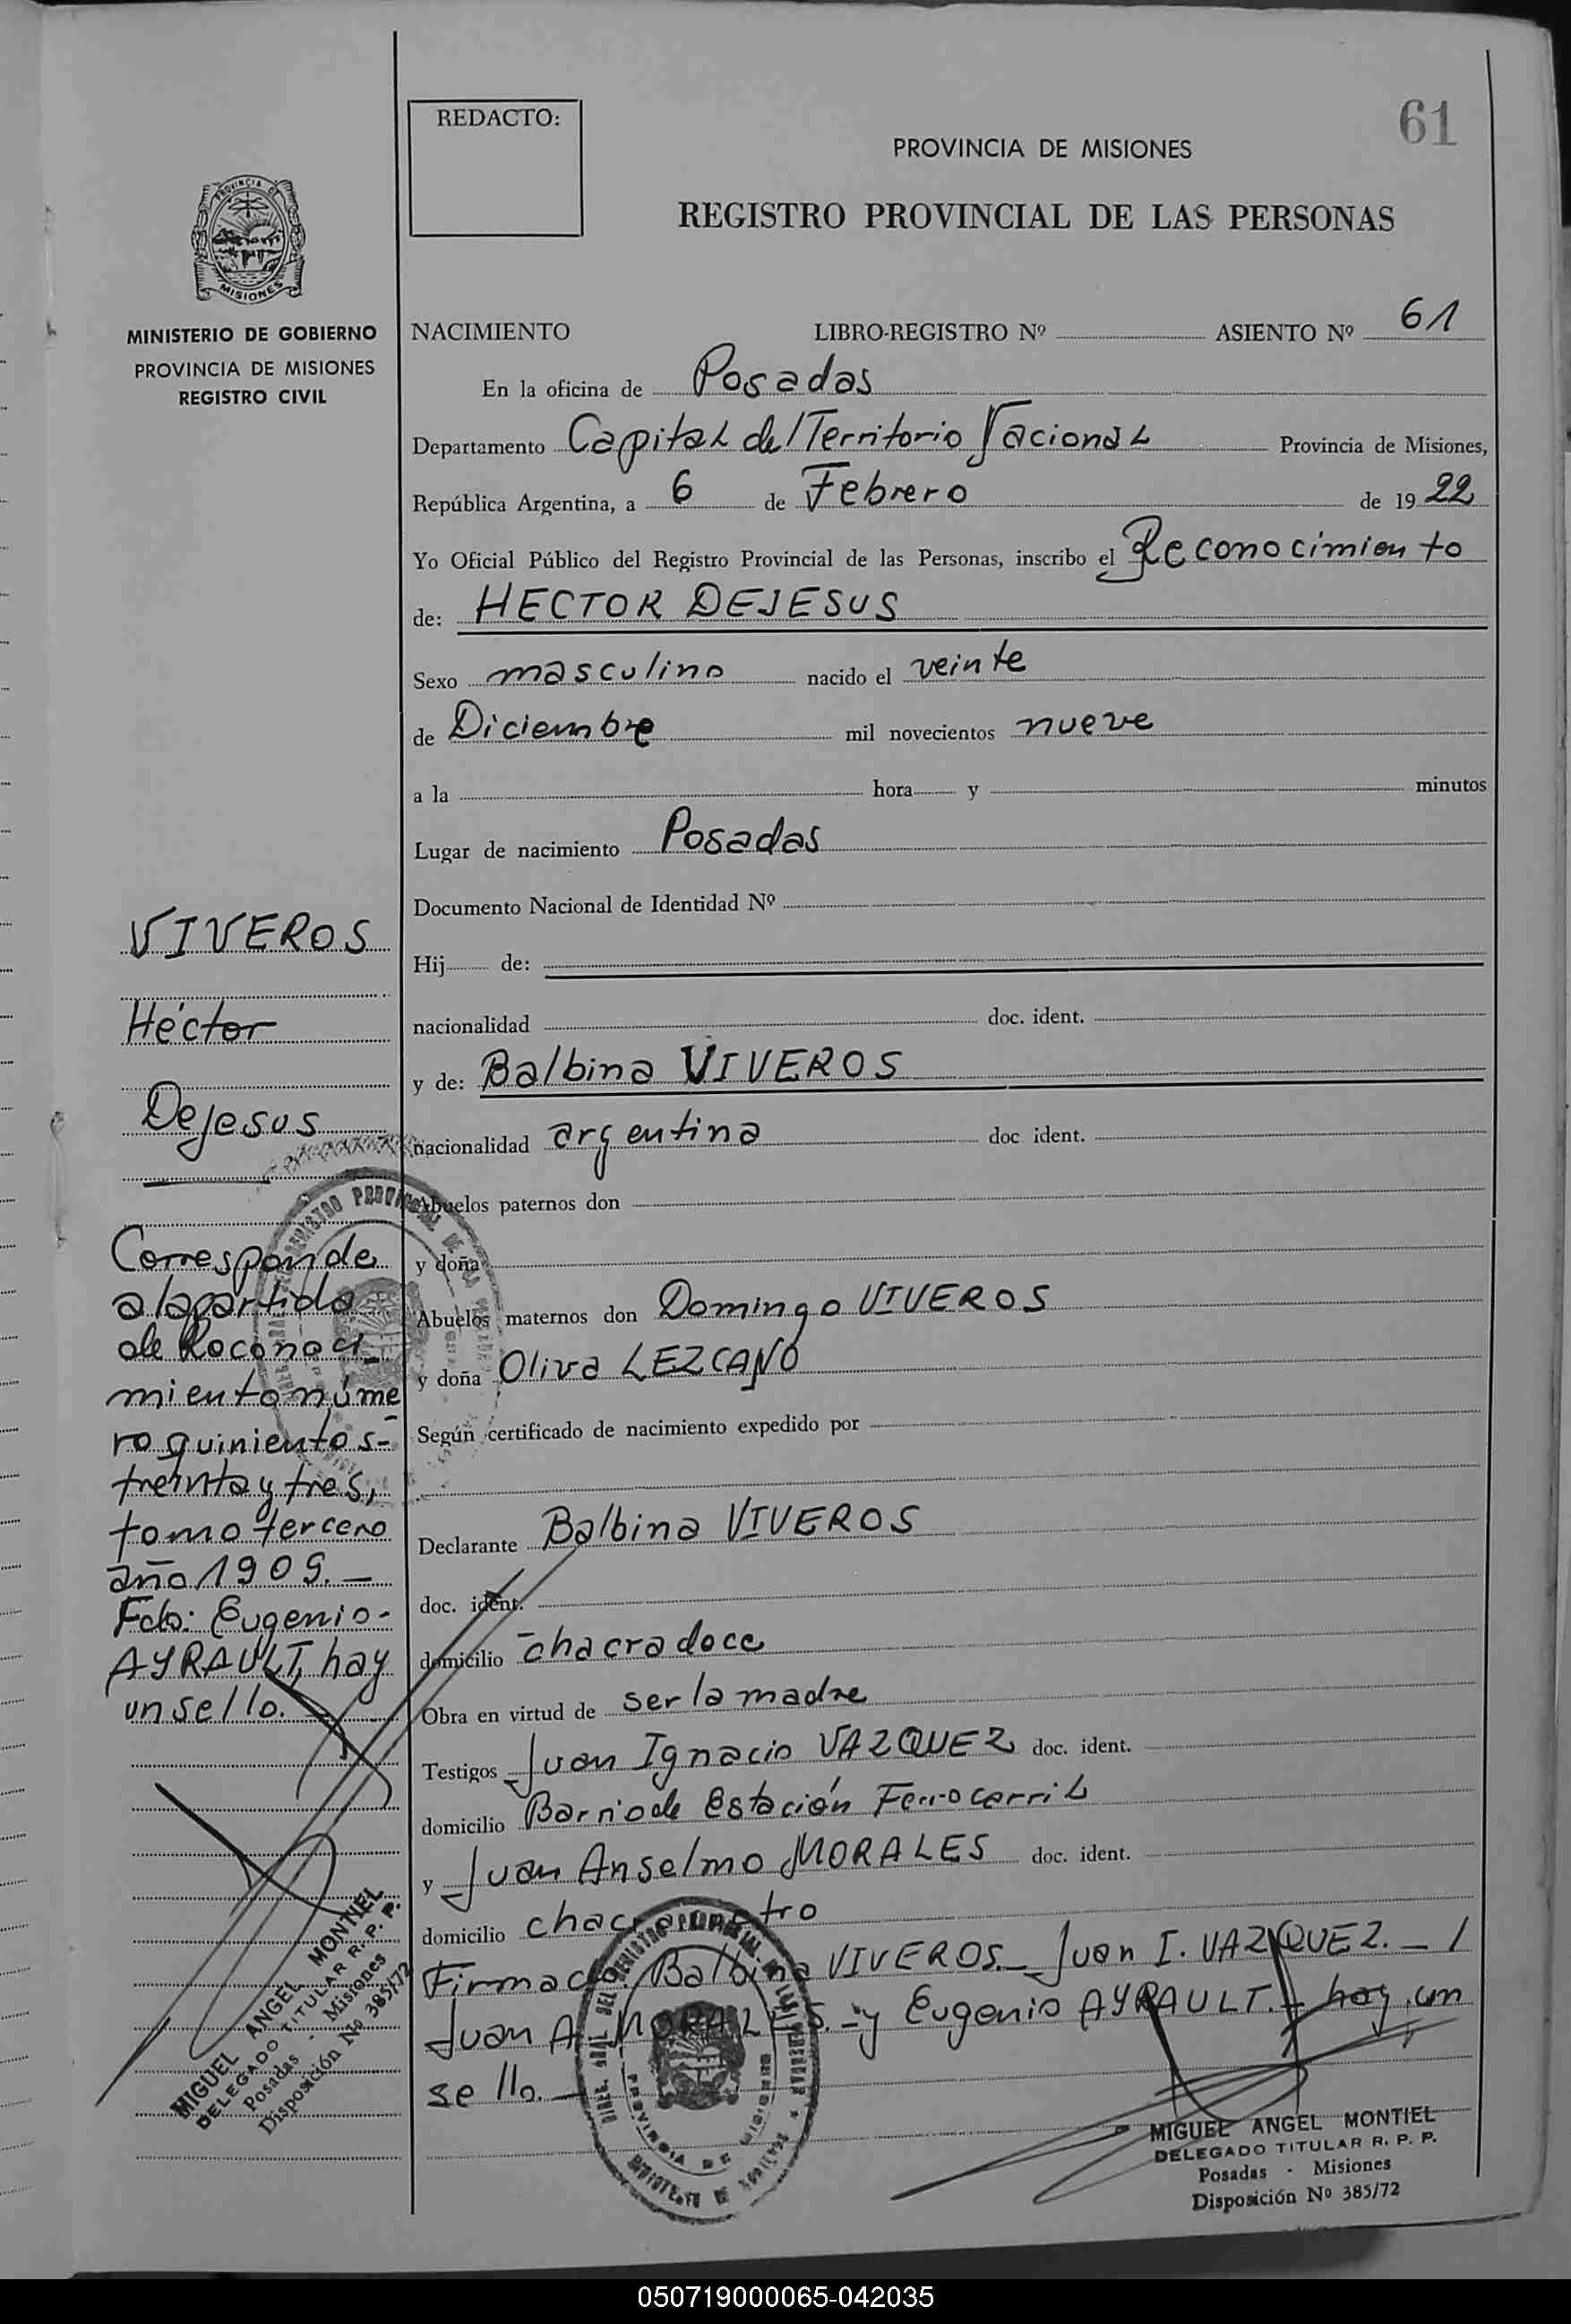 REDACTO:
61
PROVINCIA DE MISIONES
REGISTRO PROVINCIAL DE LAS PERSONAS
PROVINCIA DE
MISIONES
MINISTERIO DE GOBIERNO
PROVINCIA DE MISIONES
REGISTRO CIVIL
NACIMIENTO LIBRO-REGISTRO Nº ASIENTO Nº 61
En la oficina de Posadas
Departamento Capital del Territorio Nacional Provincia de Misiones,
República Argentina, a 6 de Febrero de 1922
Yo Oficial Público del Registro Provincial de las Personas, inscribo el Reconocimiento
de: HECTOR DEJESUS
Sexo masculino nacido el veinte
de Diciembre mil novecientos nueve
a la hora y minutos
Lugar de nacimiento Posadas
Documento Nacional de Identidad Nº
Hij de:
nacionalidad doc. ident.
y de: Balbina VIVEROS
nacionalidad argentina doc ident.
Abuelos paternos don
y doña
Abuelos maternos don Domingo VIVEROS
y doña Oliva LEZCANO
Según certificado de nacimiento expedido por
Declarante Balbina VIVEROS
doc. ident.
domicilio chacra doce
Obra en virtud de ser la madre
Testigos Juan Ignacio VAZQUEZ doc. ident.
domicilio Barrio de Estación Ferrocarril
y Juan Anselmo MORALES doc. ident.
domicilio
Firmado: Balbina VIVEROS._ Juan I. VAZQUEZ._ /
Juan A. MORALES._ y Eugenio AYRAULT._ hay un
sello._
VIVEROS
Héctor
Dejesus
Corresponde
a la partida
de Reconoci_
miento núme
ro quinientos-
treinta y tres,
tomo tercero
año 1909._
Fdo: Eugenio-
AYRAULT, hay
un sello.
MIGUEL ANGEL MONTIEL
DELEGADO TITULAR R. P. P.
Posadas - Misiones
Disposición Nº 385/72
MIGUEL ANGEL MONTIEL
DELEGADO TITULAR R. P. P.
Posadas - Misiones
Disposición Nº 385/72
050719000065-042035